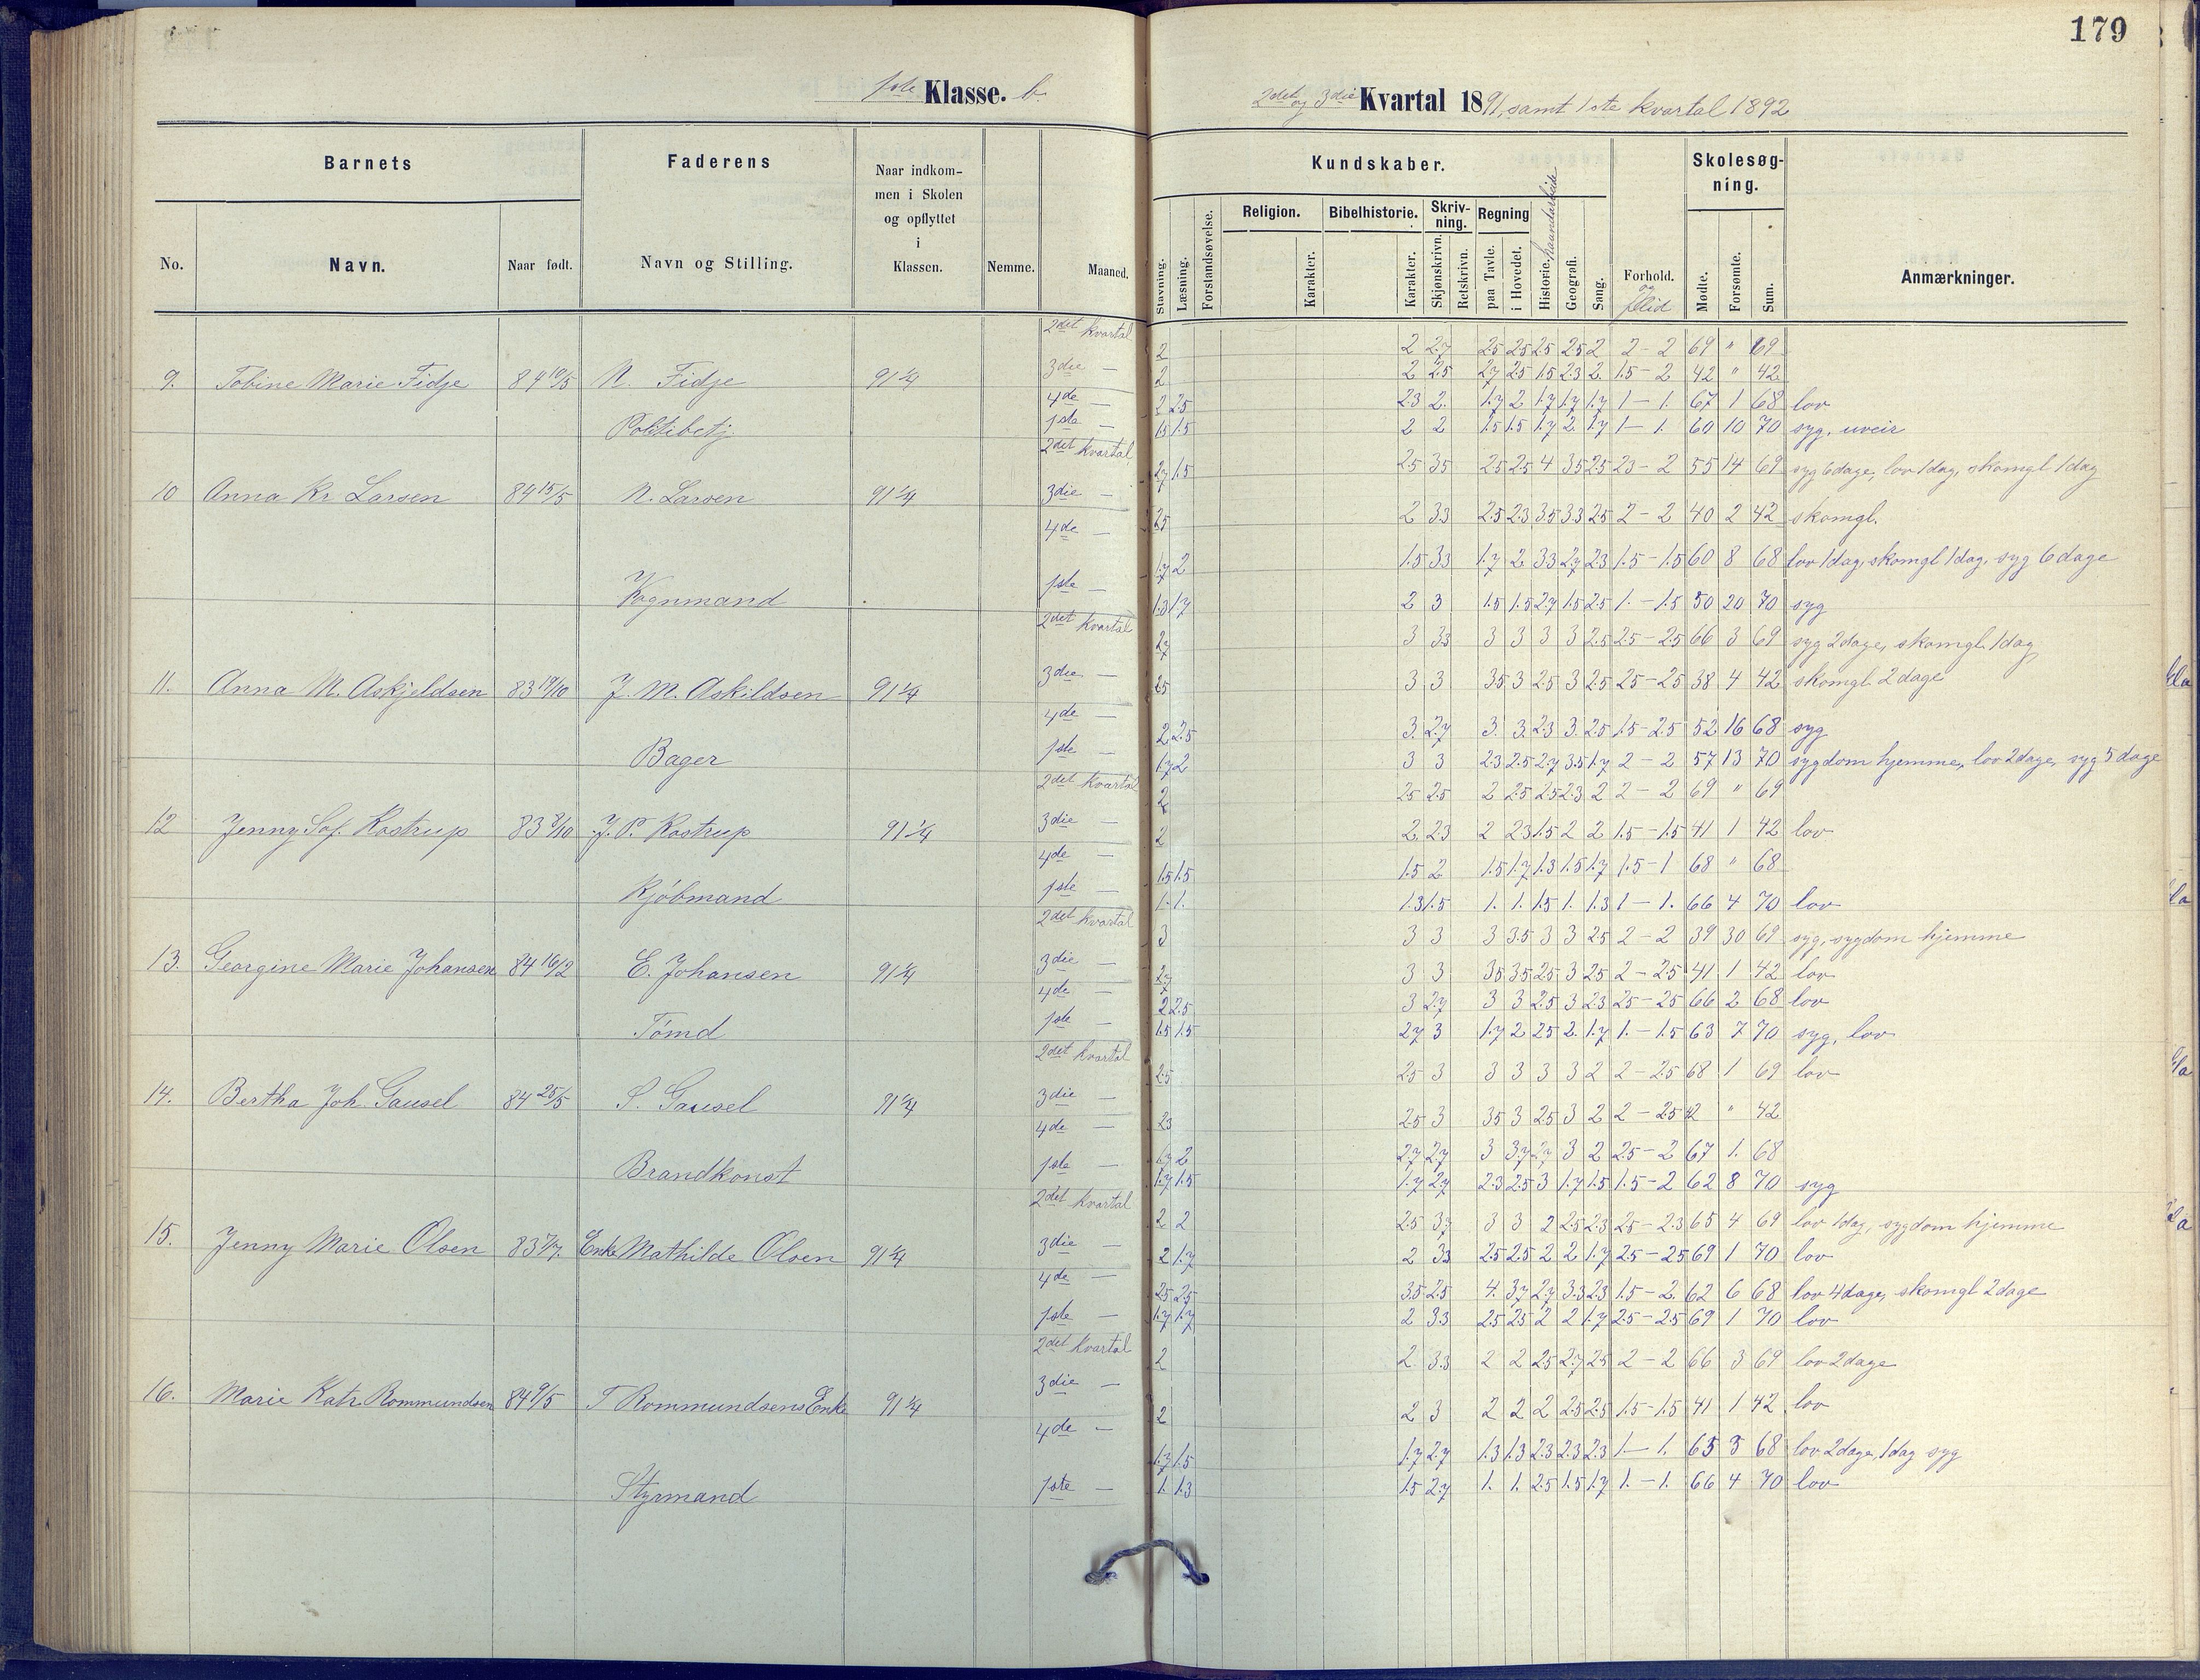 179
1ste Klasse. b.
2det og 3die Kvartal 1891, samt 1ste kvartal 1892
Barnets
Faderens
Naar indkommen i Skolen og opflyttet i Klassen.
Nemme.
Maaned.
Kundskaber.
Skolesøgning.
No.
Navn.
Naar født.
Navn og Stilling.
Stavning.
Læsning.
Forstandsøvelse.
Religion.
Karakter.
Bibelhistorie.
Karakter.
Skrivning.
Skjønskrivn.
Retskrivn.
Regning
paa Tavle.
i Hovedet.
Historie.
haandarbeide
Geografi.
Sang.
Forhold.
og flid
Mødte.
Forsømte.
Sum.
Anmærkninger.
2det kvartal 2 2 2.7 2.5 2.5 2.5 2.5 2 2 - 2 69 " 69
9. Tobine Marie Fidje 84 10/5 N. Fidje 91 1/4 3die — 2 2 2.5 2.7 2.5 1.5 2.3 2. 1.5 - 2 42 " 42
4de — 2 2.5 2.3 2. 1.7 2 1.7 1.7 1.7 1 - 1. 67 1 68 lov
Politibetj. 1ste — 1.5 1.5 2 2 1.5 1.5 1.7 2. 1.7 1 - 1. 60 10 70 syg, uveir
2det kvartal 2.7 1.5 2.5 3.5 2.5 2.5 4 3.5 2.5 2.3 - 2 55 14 69 syg 6 dage, lov 1 dag, skomgl 1 dag
10 Anna Kr Larsen 84 15/5 N. Larsen 91 1/4 3die — 2.5 2 3.3 2.5 2.3 3.5 3.3 2.5 2 - 2 40 2 42 skomgl.
4de — 1.7 2 1.5 3.3 1.7 2. 3.3 2.7 2.3 1.5 - 1.5 60 8 68 lov 1 dag, skomgl 1 dag, syg 6 dage
Vognmand 1ste — 1.3 1.7 2 3 1.5 1.5 2.7 1.5 2.5 1. - 1.5 50 20 70 syg
2det kvartal 2.7 3 3.3 3 3 3 3 2.5 2.5 - 2.5 66 3 69 syg 2 dage, skomgl. 1 dag
11. Anna M. Askjeldsen 83 19/10 J. M. Askildsen 91 1/4 3die — 2.5 3 3 3.5 3 2.5 3 2.5 2.5 - 2.5 38 4 42 skomgl. 2 dage
4de — 2 2.5 3. 2.7 3. 3. 2.3 3. 2.5 1.5 - 2.5 52 16 68 syg
Bager 1ste — 1.7 2 3 3 2.3 2.5 2.7 3.5 1.7 2 - 2 57 13 70 sygdom hjemme, lov 2 dage, syg 5 dage
2det kvartal 2 2.5 2.5 2 2.5 2.5 2.3 2 2 - 2 69 " 69
12 Jenny Sof. Kastrup 83 8/10 J. P. Kastrup 91 1/4 3die — 2 2. 2.3 2 2.3 1.5 2 2 1.5 - 1.5 41 1 42 lov
4de — 1.5 1.5 1.5 2 1.5 1.7 1.3 1.5 1.7 1.5 - 1 68 " 68
Kjøbmand 1ste — 1. 1. 1.3 1.5 1. 1. 1.5 1. 1.3 1 - 1. 66 4 70 lov
2det kvartal 3 3 3 3 3.5 3 3 2.5 2 - 2 39 30 69 syg, sygdom hjemme
13. Georgine Marie Johansen 84 16/2 E. Johansen 91 1/4 3die — 2.7 3 3 3.5 3.5 2.5 3 2.5 2 - 2.5 41 1 42 lov
4de — 2 2.5 3 2.7 3 3 2.5 3 2.3 2.5 - 2.5 66 2 68 lov
Tømd 1ste — 1.5 1.5 2.7 3 1.7 2 2.5 2. 1.7 1. - 1.5 63 7 70 syg, lov
2det kvartal 2.5 2.5 3 3 3 3 3 2 2 - 2.5 68 1 69 lov
14. Bertha Joh. Gausel 84 25/5 S. Gausel 91 1/4 3die — 2.3 2.5 3 3.5 3 2.5 3 2 2 - 2.5 42 " 42
4de — 1.7 2 2.7 2.7 3 3.7 2.7 3 2 2.5 - 2 67 1. 68
Brandkonst 1ste — 1.7 1.5 1.7 2.7 2.3 2.5 3 1.7 1.5 1.5 - 2 62 8 70 syg
2det kvartal 2 2 2.5 3.7 3 3 2 2.5 2.3 2.5 - 2.3 65 4 69 lov 1 dag, sygdom hjemme
15. Jenny Marie Olsen 83 7/7. Enke Mathilde Olsen 91 1/4 3die — 2 1.7 2 3.3 2.5 2.5 2 2 1.7 2.5 - 2.5 69 1 70 lov
4de — 2.5 2.5 3.5 2.5 4. 3.7 2.7 3.3 2.3 1.5 - 2. 62 6 68 lov 4 dage, skomgl 2 dage
1ste — 1.7 1.7 2 3.3 2.5 2.5 2 2 1.7 2.5 - 2.5 69 1 70 lov
2det kvartal 2 2 3.3 2 2 2.5 2.7 2.5 2 - 2 66 3 69 lov 2 dage
16. Marie Katr. Rommundsen 84 9/5 T Rommundsens Enke 91 1/4 3die — 2 2 3 2 2 2 2.5 2.5 1.5 - 1.5 41 1 42 lov
4de — 1.7 1.5 1.7 2.7 1.3 1.3 2.3 2.3 2.3 1 - 1. 65 3 68 lov 2 dage, 1 dag syg
Styrmand 1ste — 1. 1.3 1.5 2.7 1. 1. 2.5 1.5 1.7 1. - 1. 66 4 70 lov